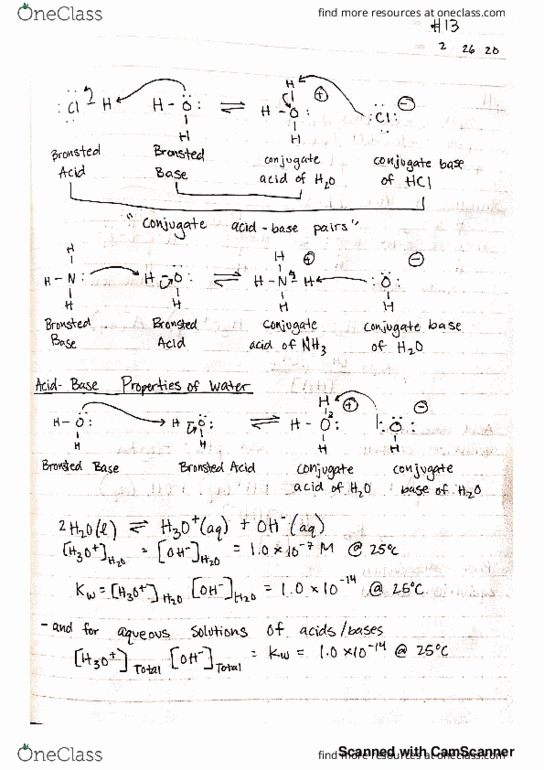 OneClass
find more resources at oneclass.com
#13
2 26 20
:Cl H H-O: ⇌ H-O: ⊕ :Cl: ⊖
Bronsted Acid
Bronsted Base
conjugate acid of H₂O
conjugate base of HCl
"conjugate acid-base pairs"
H-N: H-O: ⇌ H-N H ⊕ :O: ⊖
Bronsted Base
Bronsted Acid
conjugate acid of NH₃
conjugate base of H₂O
Acid-Base Properties of Water
H-O: H O: ⇌ H-O: ⊕ O: ⊖
Bronsted Base
Bronsted Acid
conjugate acid of H₂O
conjugate base of H₂O
2H₂O(l) ⇌ H₃O⁺(aq) + OH⁻(aq)
[H₃O⁺]H₂O = [OH⁻]H₂O = 1.0 × 10⁻⁷ M @ 25°C
Kw = [H₃O⁺]H₂O [OH⁻]H₂O = 1.0 × 10⁻¹⁴ @ 25°C
- and for aqueous solutions of acids/bases
[H₃O⁺]Total [OH⁻]Total = Kw = 1.0 ×10⁻¹⁴ @ 25°C
OneClass
find more resources at oneclass.com
Scanned with CamScanner